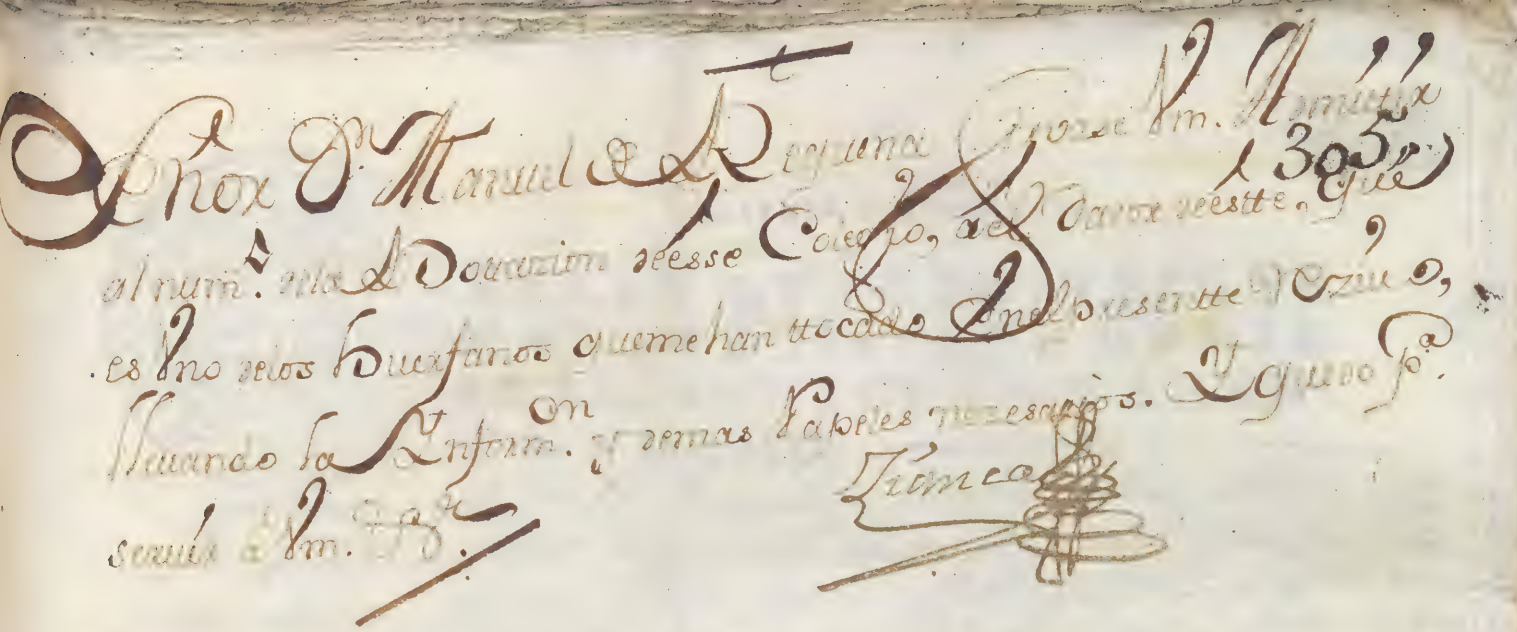 t
Señor Dn Manuel de Requena Sirvase Vm. Admitir
305
al num.o de la Dottazion de esse Colegio, a el Dador de estte, que
es Vno de los huerfanos que me han ttocado en el presentte
llevando la Ynform.on y demas Papeles nezesarios. Y quedo p.a
servir a Vm.